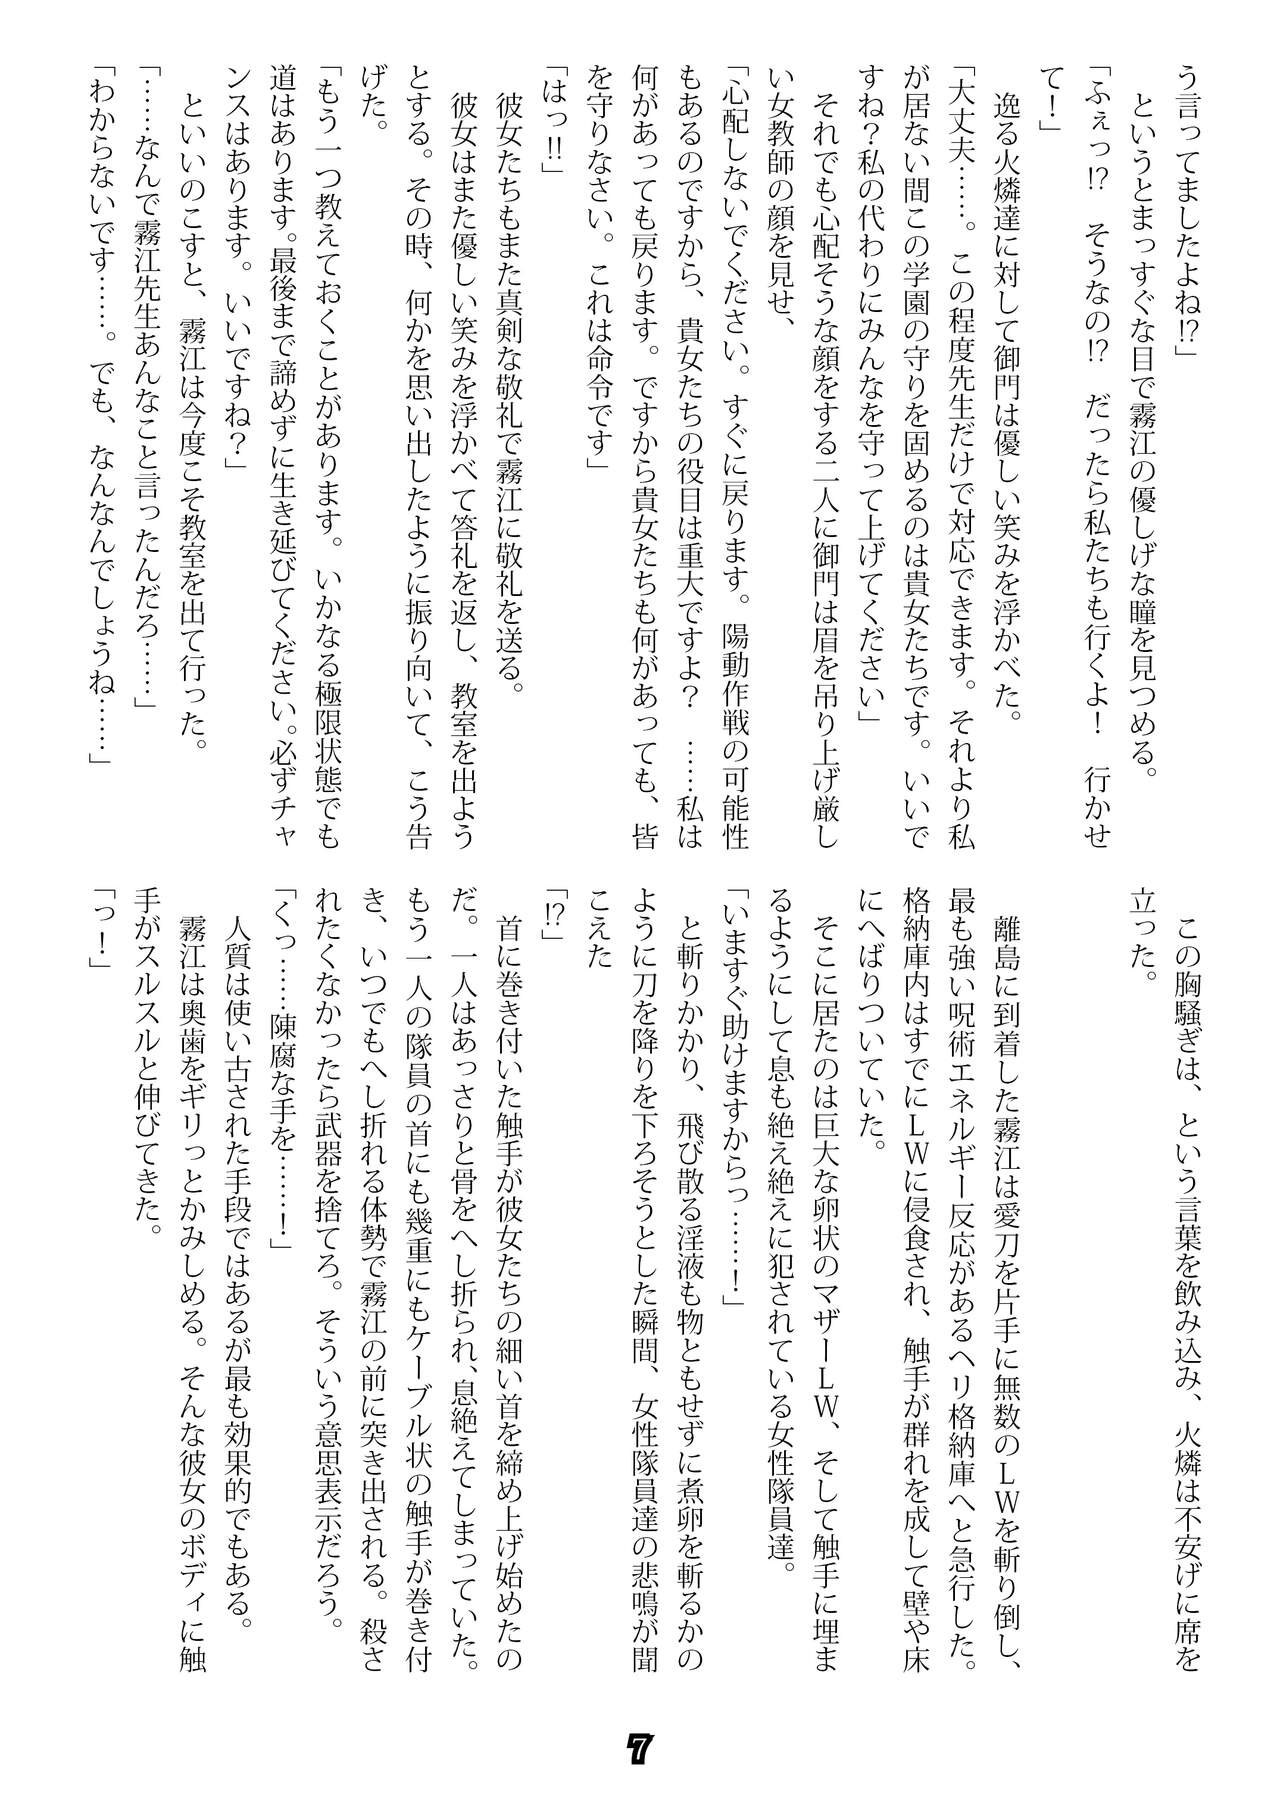 う言ってましたよね⁉」
　というとまっすぐな目で霧江の優しげな瞳を見つめる。
「ふぇっ⁉　そうなの⁉　だったら私たちも行くよ！　行かせ
て！」
　逸る火燐達に対して御門は優しい笑みを浮かべた。
「大丈夫……。この程度先生だけで対応できます。それより私
が居ない間この学園の守りを固めるのは貴女たちです。いいで
すね？私の代わりにみんなを守って上げてください」
　それでも心配そうな顔をする二人に御門は眉を吊り上げ厳し
い女教師の顔を見せ、
「心配しないでください。すぐに戻ります。陽動作戦の可能性
もあるのですから、貴女たちの役目は重大ですよ？　……私は
何があっても戻ります。ですから貴女たちも何があっても、皆
を守りなさい。これは命令です」
「はっ‼」
　彼女たちもまた真剣な敬礼で霧江に敬礼を送る。
　彼女はまた優しい笑みを浮かべて答礼を返し、教室を出よう
とする。その時、何かを思い出したように振り向いて、こう告
げた。
「もう一つ教えておくことがあります。いかなる極限状態でも
道はあります。最後まで諦めずに生き延びてください。必ずチャ
ンスはあります。いいですね？」
　といいのこすと、霧江は今度こそ教室を出て行った。
「……なんで霧江先生あんなこと言ったんだろ……」
「わからないです……。でも、なんなんでしょうね……」
　この胸騒ぎは、という言葉を飲み込み、火燐は不安げに席を
立った。
　離島に到着した霧江は愛刀を片手に無数のＬＷを斬り倒し、
最も強い呪術エネルギー反応があるヘリ格納庫へと急行した。
格納庫内はすでにＬＷに侵食され、触手が群れを成して壁や床
にへばりついていた。
　そこに居たのは巨大な卵状のマザーＬＷ、そして触手に埋ま
るようにして息も絶え絶えに犯されている女性隊員達。
「いますぐ助けますからっ……！」
　と斬りかかり、飛び散る淫液も物ともせずに煮卵を斬るかの
ように刀を降りを下ろそうとした瞬間、女性隊員達の悲鳴が聞
こえた
「⁉」
　首に巻き付いた触手が彼女たちの細い首を締め上げ始めたの
だ。一人はあっさりと骨をへし折られ、息絶えてしまっていた。
もう一人の隊員の首にも幾重にもケーブル状の触手が巻き付
き、いつでもへし折れる体勢で霧江の前に突き出される。殺さ
れたくなかったら武器を捨てろ。そういう意思表示だろう。
「くっ……陳腐な手を……！」
　人質は使い古された手段ではあるが最も効果的でもある。
　霧江は奥歯をギリっとかみしめる。そんな彼女のボディに触
手がスルスルと伸びてきた。
「っ！」
7